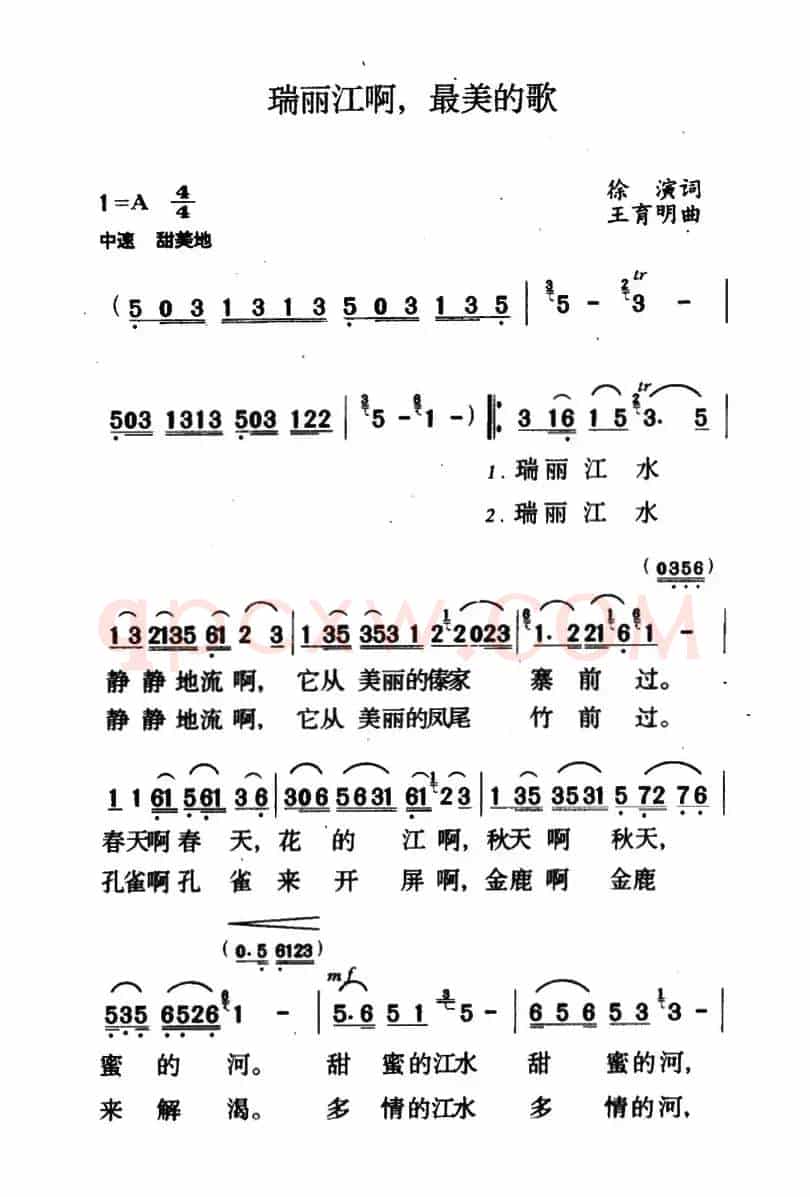 瑞丽江啊，最美的歌
1=A 4/4
徐 演词
王育明曲
中速 甜美地
( 5 0 3 1 3 1 3 5 0 3 1 3 5 | 3 5 - 2 tr 3 - |
503 1313 503 122 | 3 5 - 6 1 - ) ‖: 3 16 1 5 2 tr 3. 5 |
1. 瑞丽 江 水
2. 瑞丽 江 水
(0356)
1 3 2135 61 2 3 | 1 35 353 1 1 2 2 023 | 6 1. 2 221 6 6 6 1 - |
静 静 地流 啊, 它从 美丽的傣家 寨 前 过。
静 静 地流 啊, 它从 美丽的凤尾 竹 前 过。
1 1 61 561 3 6 | 306 5631 61 1 2 3 | 1 35 3531 5 72 7 6 |
春天啊 春 天, 花 的 江 啊, 秋天 啊 秋天,
孔雀啊 孔 雀 来 开 屏 啊, 金鹿 啊 金鹿
(0.5 6123)
mf
535 6526 6 1 - | 5.6 5 1 3 5 - | 6 5 6 5 3 1 3 - |
蜜 的 河。 甜 蜜的江水 甜 蜜的河,
来 解 渴。 多 情的江水 多 情的河,
qpcxw.COM